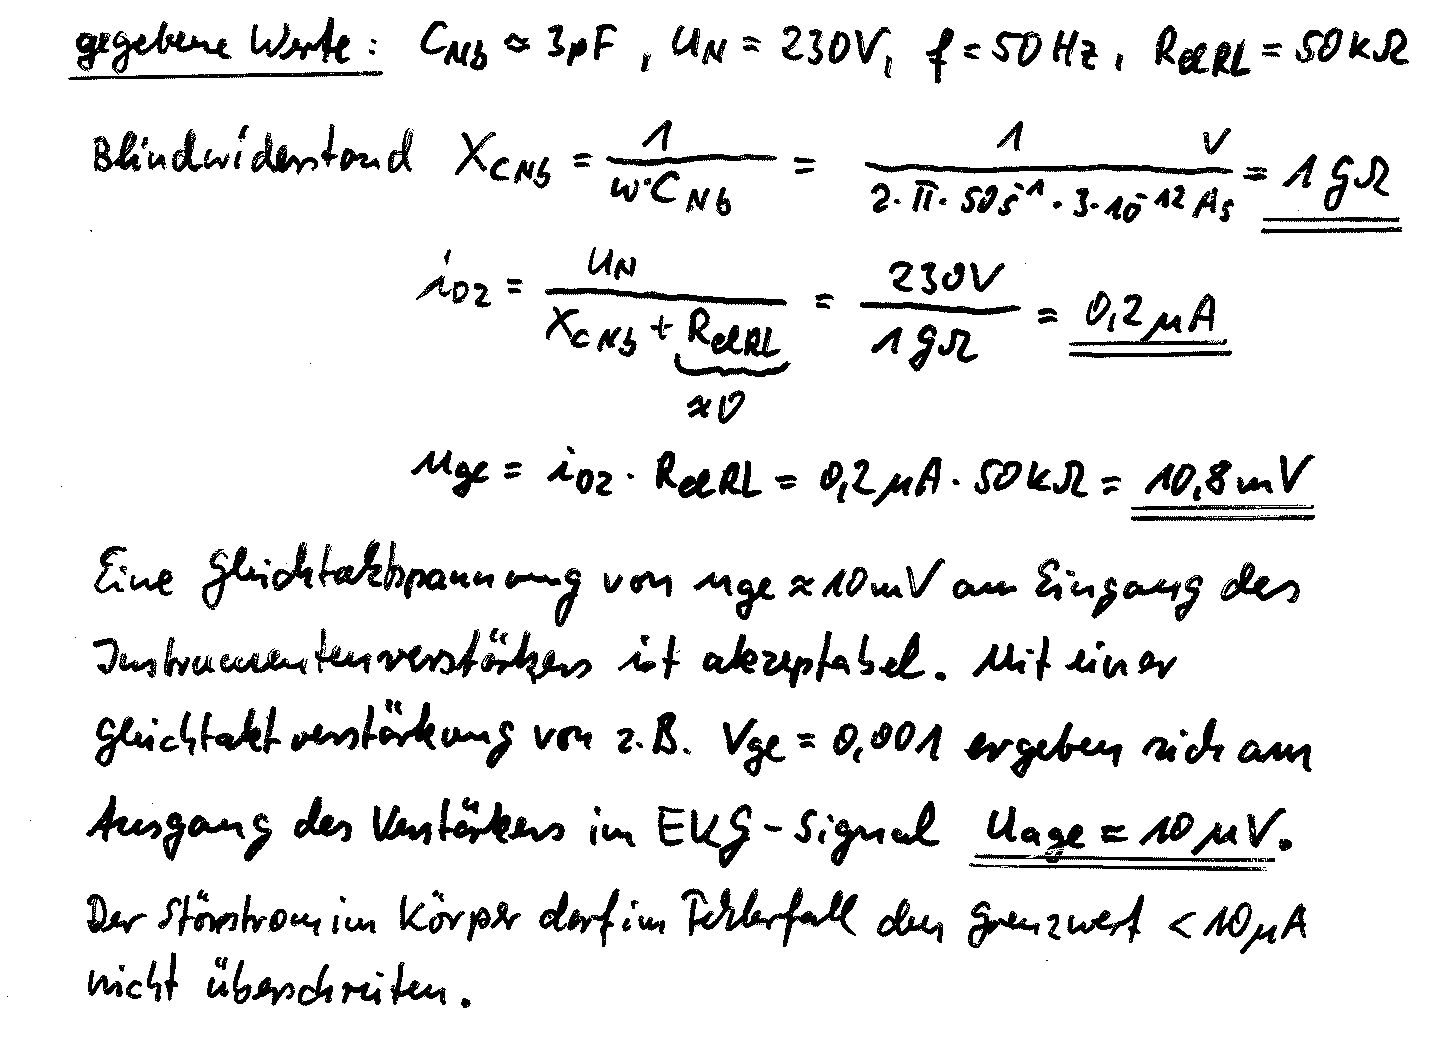 gegebene Werte: C_Nb ≈ 3pF, U_N = 230V, f = 50 Hz, R_elRL = 50kΩ
Blindwiderstand X_CNb = 1 / (ω·C_Nb) = 1 V / (2·π·50s⁻¹·3·10⁻¹² As) = 1 GΩ
i_02 = U_N / (X_CNb + R_elRL) = 230V / 1GΩ = 0,2µA
≈0
u_ge = i_02 · R_elRL = 0,2µA · 50kΩ = 10,8mV
Eine Gleichtaktspannung von u_ge ≈ 10mV am Eingang des
Instrumentenverstärkers ist akzeptabel. Mit einer
Gleichtaktverstärkung von z.B. V_ge = 0,001 ergeben sich am
Ausgang des Verstärkers im EKG-Signal U_age = 10µV.
Der Störstrom im Körper darf im Fehlerfall den Grenzwert < 10µA
nicht überschreiten.